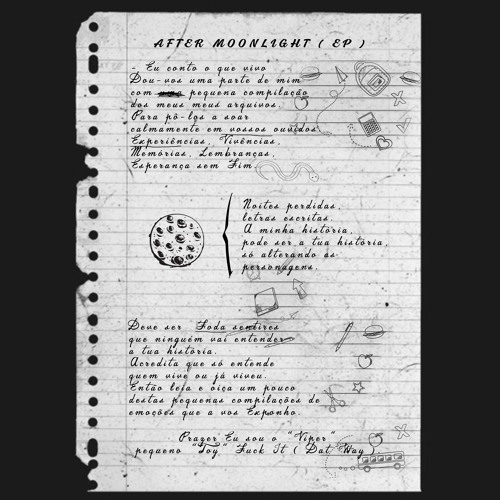 AFTER MOONLIGHT ( EP )
- Eu conto o que vivo
Dou-vos uma parte de mim
com pequena compilação
dos meus meus arquivos.
Para pô-los a soar
calmamente em vossos ouvidos.
Experiências, Vivências,
Memórias, Lembranças,
Esperança sem Fim
Noites perdidas,
letras escritas.
A minha história,
pode ser a tua história,
só alterando as
personagens.
Deve ser Foda sentires
que ninguém vai entender
a tua história.
Acredita que só entende
quem vive ou já viveu.
Então leia e oiça um pouco
destas pequenas compilações de
emoções que a vos Exponho.
Prazer Eu sou o "Viper"
pequeno "Joy" Fuck It ( Dat Way )